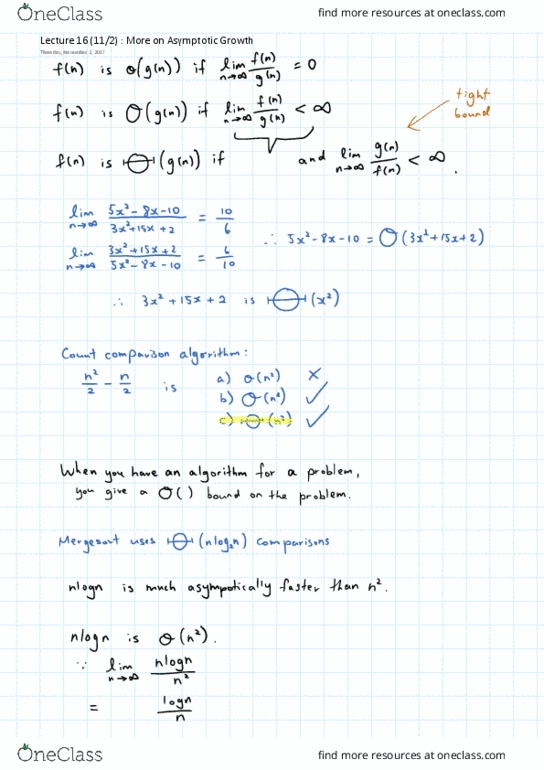 OneClass find more resources at oneclass.com
Lecture 16 (11/2) : More on Asymptotic Growth
Thursday, November 2, 2017
f(n) is o(g(n)) if lim n→∞ f(n)/g(n) = 0
f(n) is O(g(n)) if lim n→∞ f(n)/g(n) < ∞
tight
bound
f(n) is Θ(g(n)) if and lim n→∞ g(n)/f(n) < ∞.
lim n→∞ 5x²-8x-10 / 3x²+15x+2 = 10/6
∴ 5x²-8x-10 = O(3x²+15x+2)
lim n→∞ 3x²+15x+2 / 5x²-8x-10 = 6/10
∴ 3x²+15x+2 is Θ(x²)
Count comparison algorithm:
n²/2 - n/2 is a) o(n²) ✗
b) O(n²) ✓
c) Θ(n²) ✓
When you have an algorithm for a problem,
you give a O() bound on the problem.
Mergesort uses Θ(nlog₂n) comparisons
nlogn is much asympotically faster than n².
nlogn is o(n²).
∵ lim n→∞ nlogn/n²
= logn/n
OneClass find more resources at oneclass.com